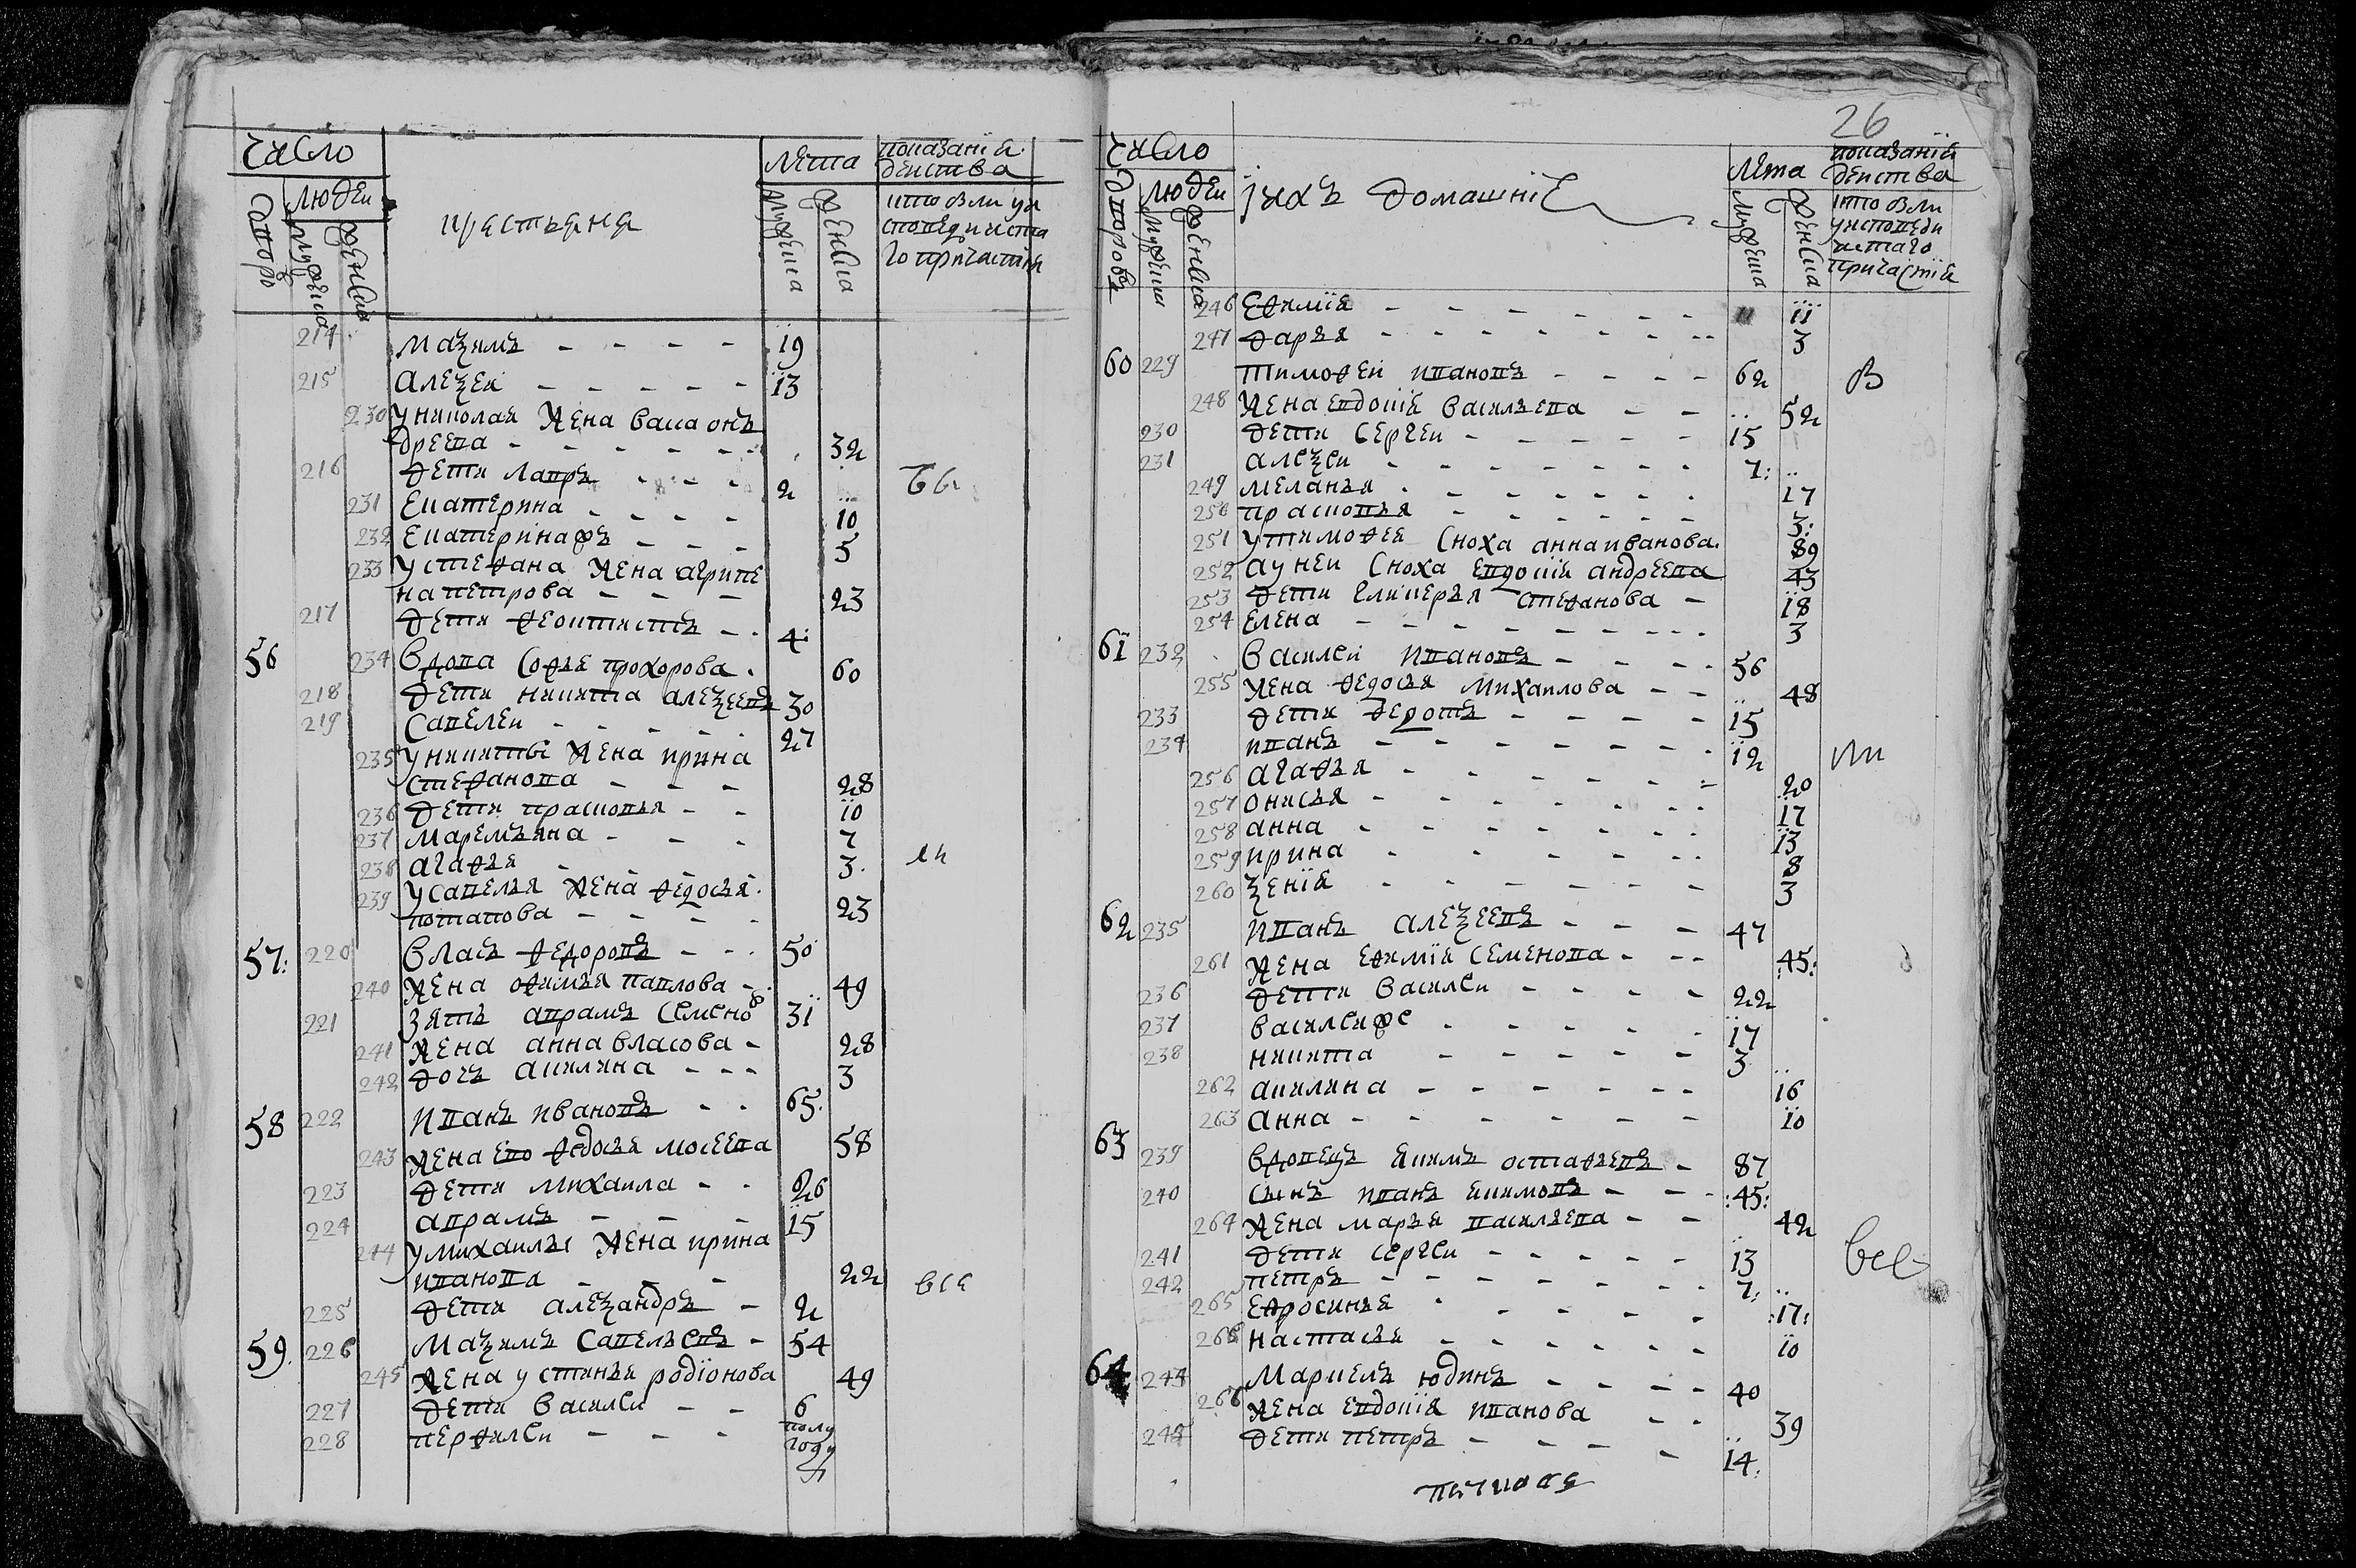 число
людеи
дворо
мужеска
женска
крестьяня
лета
мужеска
женска
показанїя
деиства
кто былъ у и
споведи и ста
го причастия
214 маѯимъ - - - - 19
215 алеѯеи - - - - - 13
230 у николая жена васса он
дреева - - - - - - 32
216 дети лавръ - - - 2
231 екатерина - - - - 10
232 екатерина жъ - - - 5
233 у стефана жена агрипе
на петрова - - - 23
217 дети феоктистъ - - 4
56 234 вдова софья прохорова 60
218 дети никита алеѯеевъ 30
219 савелеи - - - - - 27
235 у никиты жена ирина
стефанова - - - 28
236 дети прасковья - - 10
237 маремьяна - - - 7
238 агафья - - - - 3
239 у савелья жена федосья
потапова - - - - 23
57 220 власъ федоровъ - - - 50
240 жена офимья павлова - 49
221 зять аврамъ семенов 31
241 жена анна власова - 28
242 дочь акилина - - - 3
58 222 иванъ ивановъ - - 65
243 жена ево федосья мосеева 58
223 дети михаила - - 26
224 аврамъ - - - 15
244 у михаилы жена ирина
иванова - - - 22
все
225 дети алеѯандръ - 2
59 226 маѯимъ савельевъ - 54
245 жена устинья родїонова 49
227 дети василеи - - 6
228 перфилеи - - - полу
году
26
число
людеи
дворовъ
мужеска
женска
ихъ домашнїе
лета
мужеска
женска
показанїя
деиства
кто были
у исповеди
и стаго
причастїя
246 ефимїя - - - - - - - 11
247 дарья - - - - - - - - - 3
60 229 тимофеи ивановъ - - - - 62
248 жена евдокїя васильева - - 52
230 дети сергеи - - - - - 15
231 алеѯеи - - - - - - - 7
249 меланья - - - - - - - 17
250 прасковья - - - - - - 3
251 у тимофея сноха анна иванова 89
252 а у неи сноха евдокїя андреева 43
253 дети гликерья стефанова - 18
254 елена - - - - - - - - - - 3
61 232 василеи ивановъ - - - - - 56
255 жена федосья михаилова - - 48
233 дети федотъ - - - - - 15
234 иванъ - - - - - - - - 12
256 агафья - - - - - - - 20
257 онисья - - - - - - - - 17
258 анна - - - - - - - - 13
259 ирина - - - - - - - 8
260 ѯенїя - - - - - - - 3
62 235 иванъ алеѯеевъ - - - - 47
261 жена ефимїя семенова - - - 45
236 дети василеи - - - - - 22
237 василеи же - - - - - - 17
238 никита - - - - - 3
262 акилина - - - - - - - 16
263 анна - - - - - - - 10
63 239 вдовецъ якимъ остафьевъ - 87
240 сынъ иванъ якимовъ - - - 45
264 жена марья васильева - - 42
241 дети сергеи - - - - - 13
242 петръ - - - - - - - - 7
все
265 ефросинья - - - - - 17
266 настасья - - - - - - 10
64 маркелъ юдинъ - - - - - 40
жена евдокїя иванова - - 39
дети петръ - - - - - 14